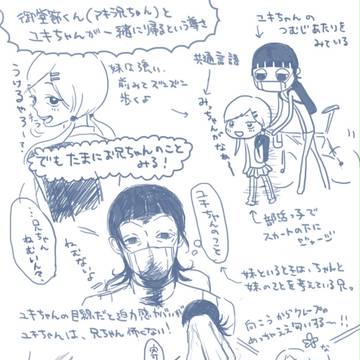 御堂筋くん(アキ兄ちゃん)と
ユキちゃんが一緒に帰るという尊さ
ユキちゃんの
つむじあたりを
みている
共通言語
妹は強い
前みてズンズン
歩くよ
みっちゃんがなぁー
でもたまにお兄ちゃんのこと
みる!
部活っ子で
スカートの下に
ジャージ
ユキちゃんのつむじ
…兄ちゃん
ねむいん?
ねむいなぁ
妹といるときは、ちゃんと
妹のことを考えている兄。
ユキちゃんの目線だと迫力感がいいが
ユキちゃんは、兄ちゃん怖くない!
向こうからクレープの